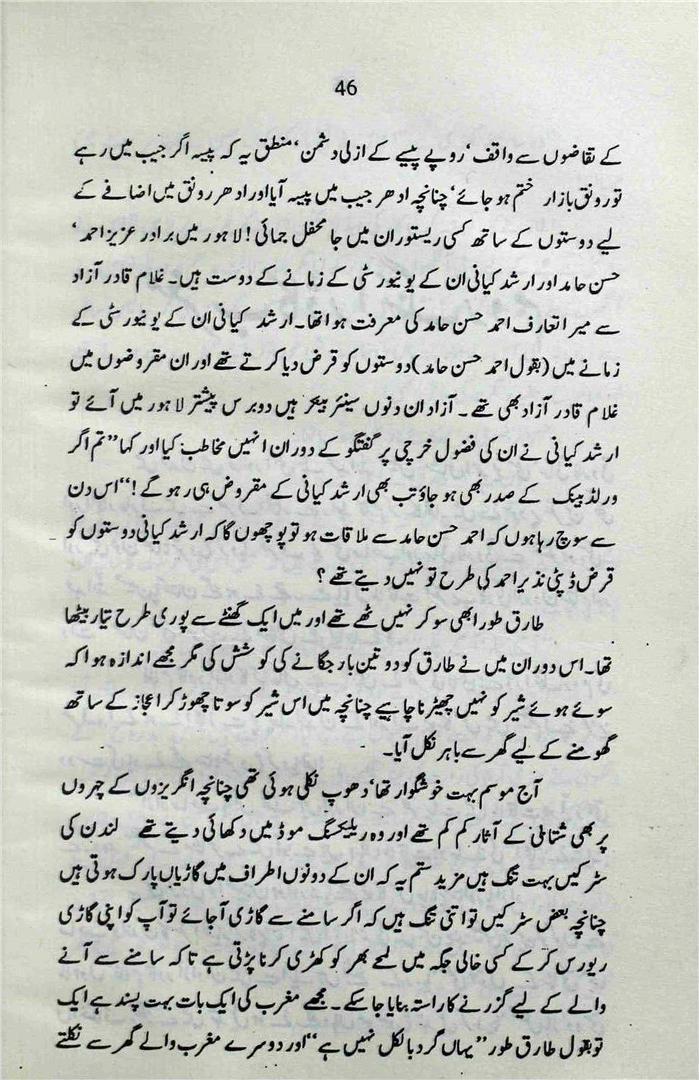 46
کے تقاضوں سے واقف‘ روپے پیسے کے ازلی دشمن‘ منطق یہ کہ پیسہ اگر جیب میں رہے
تو رونق بازار ختم ہو جائے‘ چنانچہ ادھر جیب میں پیسہ آیا اور ادھر رونق میں اضافے کے
لیے دوستوں کے ساتھ کسی ریستوران میں جا محفل جمائی! لاہور میں برادر عزیز احمد‘
حسن حامد اور ارشد کیانی ان کے یونیورسٹی کے زمانے کے دوست ہیں۔ غلام قادر آزاد
سے میرا تعارف احمد حسن حامد کی معرفت ہوا تھا۔ ارشد کیانی ان کے یونیورسٹی کے
زمانے میں (بقول احمد حسن حامد) دوستوں کو قرض دیا کرتے تھے اور ان مقروضوں میں
غلام قادر آزاد بھی تھے۔ آزاد ان دنوں سینئر بینکر ہیں دو برس پیشتر لاہور میں آئے تو
ارشد کیانی نے ان کی فضول خرچی پر گفتگو کے دوران انہیں مخاطب کیا اور کہا ”تم اگر
ورلڈ بینک کے صدر بھی ہو جاؤ تب بھی ارشد کیانی کے مقروض ہی رہو گے!“ اس دن
سے سوچ رہا ہوں کہ احمد حسن حامد سے ملاقات ہو تو پوچھوں گا کہ ارشد کیانی دوستوں کو
قرض ڈپٹی نذیر احمد کی طرح تو نہیں دیتے تھے؟
طارق طور ابھی سو کر نہیں اٹھے تھے اور میں ایک گھنٹے سے پوری طرح تیار بیٹھا
تھا۔ اس دوران میں نے طارق کو دو تین بار جگانے کی کوشش کی مگر مجھے اندازہ ہوا کہ
سوئے ہوئے شیر کو نہیں چھیڑنا چاہیے چنانچہ میں اس شیر کو سوتا چھوڑ کر اعجاز کے ساتھ
گھومنے کے لیے گھر سے باہر نکل آیا۔
آج موسم بہت خوشگوار تھا‘ دھوپ نکلی ہوئی تھی چنانچہ انگریزوں کے چہروں
پر بھی شتابی کے آثار کم کم تھے اور وہ ریلیکسنگ موڈ میں دکھائی دیتے تھے لندن کی
سڑکیں بہت تنگ ہیں مزید ستم یہ کہ ان کے دونوں اطراف میں گاڑیاں پارک ہوتی ہیں
چنانچہ بعض سڑکیں تو اتنی تنگ ہیں کہ اگر سامنے سے گاڑی آ جائے تو آپ کو اپنی گاڑی
ریورس کر کے کسی خالی جگہ میں لمحے بھر کو کھڑی کرنا پڑتی ہے تاکہ سامنے سے آنے
والے کے لیے گزرنے کا راستہ بنایا جا سکے۔ مجھے مغرب کی ایک بات بہت پسند ہے ایک
تو بقول طارق طور ”یہاں گرد بالکل نہیں ہے“ اور دوسرے مغرب والے گھر سے نکلتے